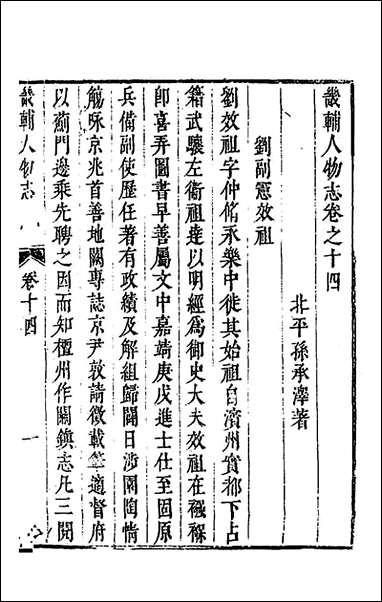 畿輔人物志卷之十四
北平孫承澤著
劉副憲效祖
劉效祖字仲脩永樂中徙其始祖自濱州實都下占
籍武驤左衛祖逵以明經為御史大夫效祖在襁褓
即喜弄圖書早善屬文中嘉靖庚戌進士仕至固原
兵備副使歷任著有政績及解組歸闢日涉園陶情
觴咏京兆首善地闕專誌京尹敦請徵載筆適督府
以薊門邊乘先聘之因而知檀州作關鎮志凡三閱
畿輔人物志
卷十四
一